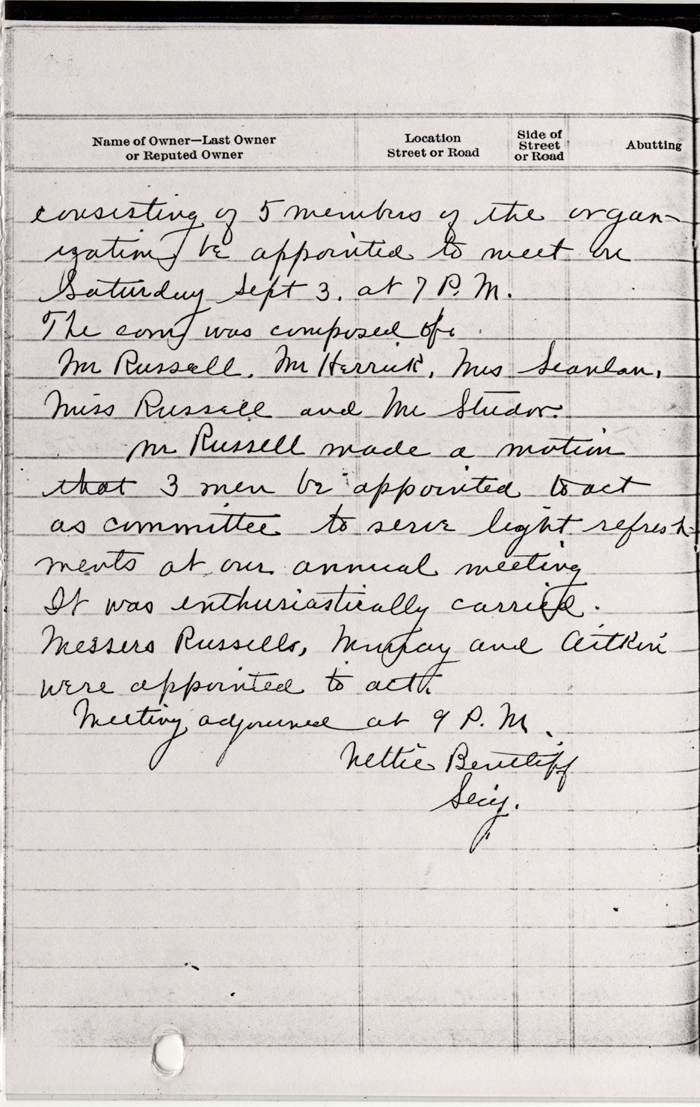 Name of Owner—Last Owner
or Reputed Owner
Location
Street or Road
Side of
Street
or Road
Abutting
consisting of 5 members of the organ-
ization be appointed to meet on
Saturday Sept 3. at 7 P. M.
The com was composed of
Mr Russell, Mr Herrick, Mrs Scanlan,
Miss Russell and Mr Studor.
Mr Russell made a motion
that 3 men be appointed to act
as committee to serve light refresh-
ments at our annual meeting
It was enthusiastically carried.
Messers Russells, Murray and Aitkin
were appointed to act.
Meeting adjourned at 9 P. M.
Nettie Bentliff
Secy.